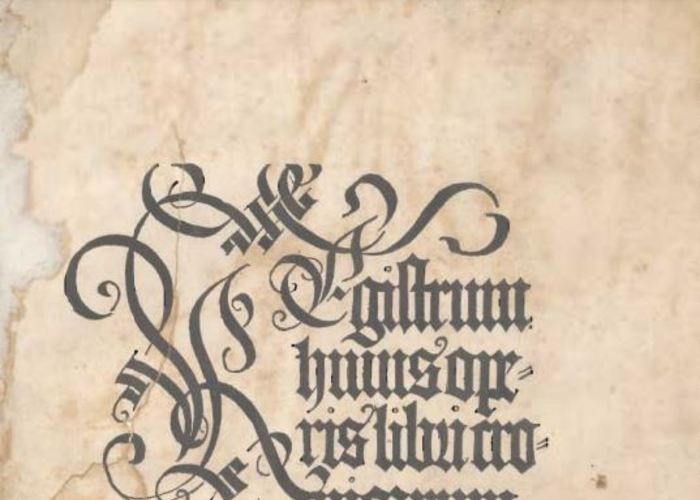 REgistrum
huius ope-
ris libri cro-